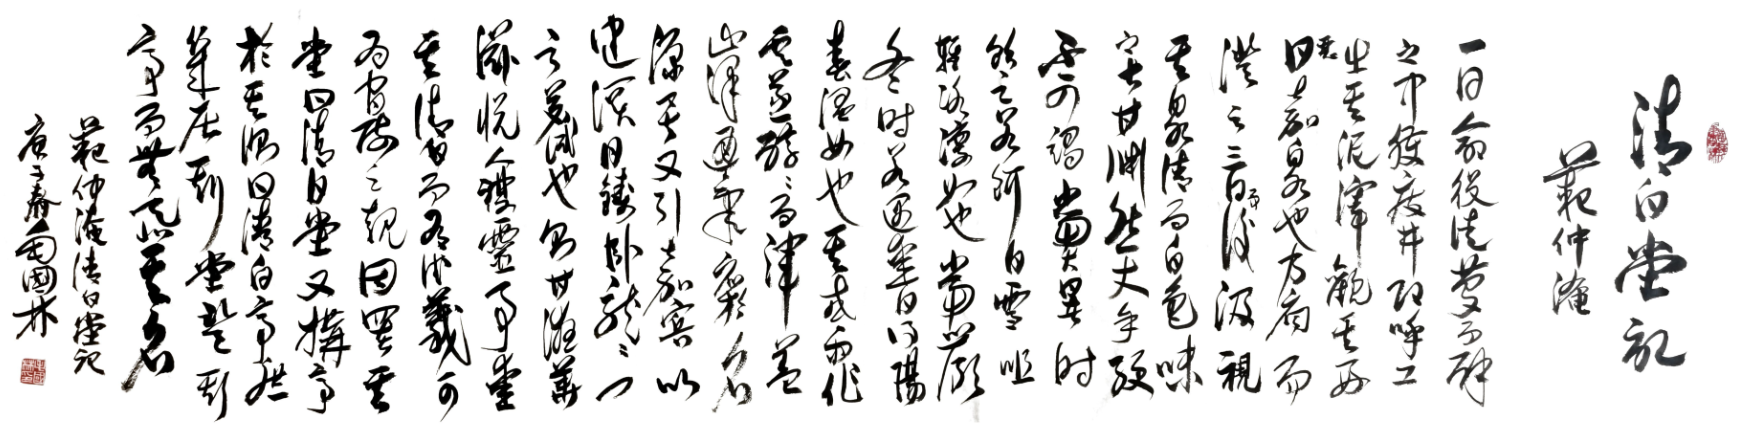 清白堂記
范仲淹
一日命役徒芟而辟
之中獲廢井即呼工
出其泥滓觀其好
惡曰嘉泉也方扃而
澄之三日而後汲視
其泉清而白色味
之甚甘淵然丈余綆
不可竭當大暑時
飲之若餌白雪咀
輕冰凜如也當嚴
冬時若遇愛日得陽
春溫如也其或雨作
雲蒸醇醇而渾蓋
山澤通氣應於名
源矣又引嘉賓以
建溪日鑄卧龍雲門
之茗試也則甘液華
滋悅人襟靈予愛
其清白而有德義可
為官師之規因署其
堂曰清白堂又構亭
於其側曰清白亭庶
幾居斯堂登斯
亭而無忝其名
范仲淹清白堂記
庚子春國林